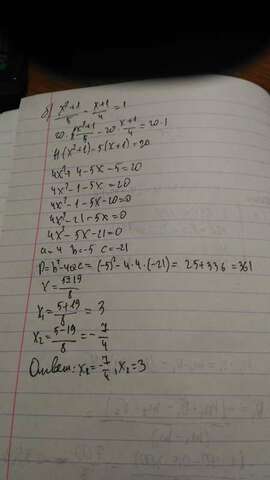 б) x²+1/5 - x+1/4 = 1
20· x²+1/5 - 20· x+1/4 = 20·1
4(x²+1)-5(x+1)=20
4x²+4-5x-5=20
4x²-1-5x=20
4x²-1-5x-20=0
4x²-21-5x=0
4x²-5x-21=0
a=4 b=-5 c=-21
D=b²-4ac=(-5)²-4·4·(-21)=25+336=361
x=5±19/8
x₁=5+19/8=3
x₂=5-19/8=-7/4
Ответ: x₁=-7/4, x₂=3